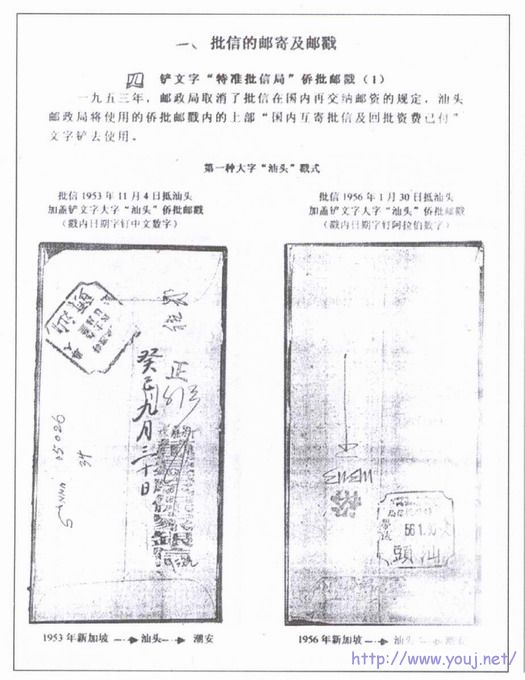 一、批信的邮寄及邮戳
四 铲文字“特准批信局”侨批邮戳（1）
一九五三年，邮政局取消了批信在国内再交纳邮资的规定，汕头
邮政局将使用的侨批邮戳内的上部“国内互寄批信及回批资费已付”
文字铲去使用。
第一种大字“汕头”戳式
批信 1953 年 11 月 4 日抵汕头
加盖铲文字大字“汕头”侨批邮戳
（戳内日期字钉中文数字）
批信 1956 年 1 月 30 日抵汕头
加盖铲文字大字“汕头”侨批邮戳
（戳内日期字钉阿拉伯数字）
癸巳九月三十日
正
05026
34
56.1.30
汕頭
1953 年新加坡 汕头 潮安
1956 年新加坡 汕头 潮安
http://www.youj.net/